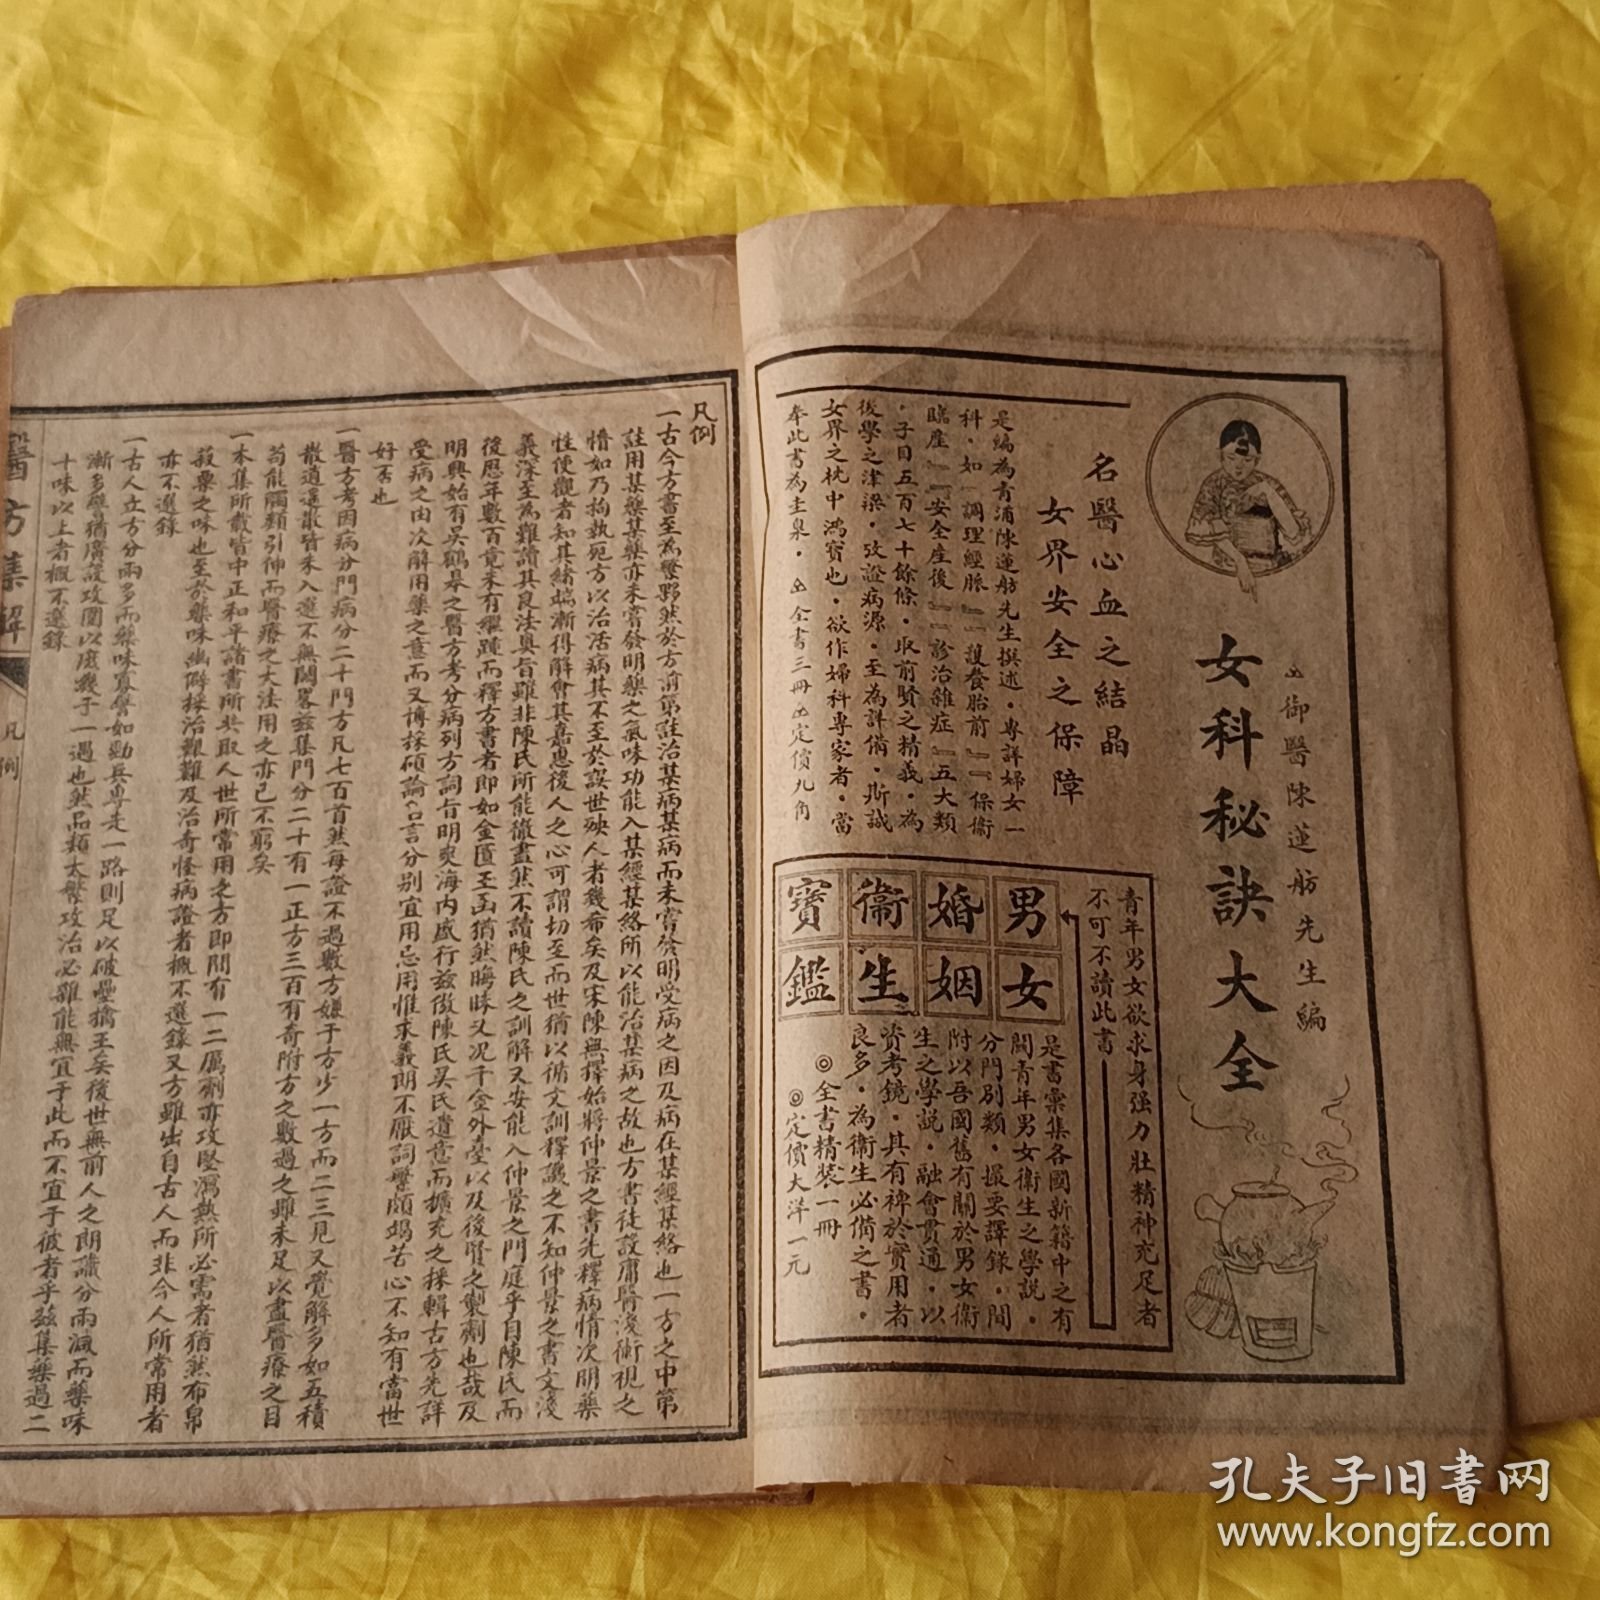 御醫陳蓮舫先生編
女科秘訣大全
名醫心血之結晶
女界安全之保障
是編為青浦陳蓮舫先生撰述·專詳婦女一
科·如『調理經脈』『護養胎前』『保衛
臨產』『安全產後』『診治雜症』五大類
·子目五百七十餘條·取前賢之精義·為
後學之津梁·攷證病源·至為詳備·斯誠
女界之枕中鴻寶也·欲作婦科專家者·當
奉此書為圭臬·
全書三冊
定價九角
青年男女欲求身强力壯精神充足者
不可不讀此書
男女
婚姻
衞生
寶鑑
是書彙集各國新籍中之有
關青年男女衛生之學說·
分門別類·撮要譯錄·間
附以吾國舊有關於男女衛
生之學說·融會貫通·以
資考鏡·具有裨於實用者
良多·為衛生必備之書·
◎全書精裝一冊
◎定價大洋一元
凡例
一古今方書至為繁夥然於方前第註治某病某病而未嘗發明受病之因及病在某經某絡也一方之中第
註用某藥某藥亦未嘗發明藥之氣味功能入某經某絡所以能治某病之故也方書徒設庸醫淺術視之
懵如乃拘執宛方以治活病其不至於誤世殃人者幾希矣及宋陳無擇始將仲景之書先釋病情次明藥
性使觀者知其緒端漸得解會其嘉惠後人之心可謂切至而世猶以循文訓釋譏之不知仲景之書文淺
義深至為難讀其良法奧旨雖非陳氏所能徹盡然不讀陳氏之訓解又安能入仲景之門庭乎自陳氏而
後歷年數百竟未有繼踵而釋方書者即如金匱玉函猶然晦昧又况千金外臺以及後賢之製劑也哉及
明興始有吳鶴皋之醫方考分病列方詞旨明爽海内盛行茲倣陳氏吳氏遺意而擴充之採輯古方先詳
受病之由次解用藥之意而又博採碩論名言分别宜用忌用惟求義朗不厭詞繁頗竭苦心不知有當世
好否也
一醫方考因病分門病分二十門方凡七百首然每證不過數方嫌于方少一方而二三見又覺解多如五積
散逍遥散皆未入選不無闕畧茲集門分二十有一正方三百有奇附方之數過之雖未足以盡醫療之目
苟能觸類引伸而醫療之大法用之亦已不窮矣
一本集所載皆中正和平諸書所共取人世所常用之方即間有一二厲劑亦攻堅瀉熱所必需者猶然布帛
菽粟之味也至於藥味幽僻採治艱難及治奇怪病證者概不選錄又方雖出自古人而非今人所常用者
亦不選錄
一古人立方分兩多而藥味寡譬如勁兵專走一路則足以破壘擒王矣後世無前人之朗識分兩減而藥味
漸多譬猶廣設攻圍以庶幾于一遇也然品類太繁攻治必雜能無宜于此而不宜于彼者乎茲集藥過二
十味以上者概不選錄
醫方集解
凡例
孔夫子旧書网
www.kongfz.com